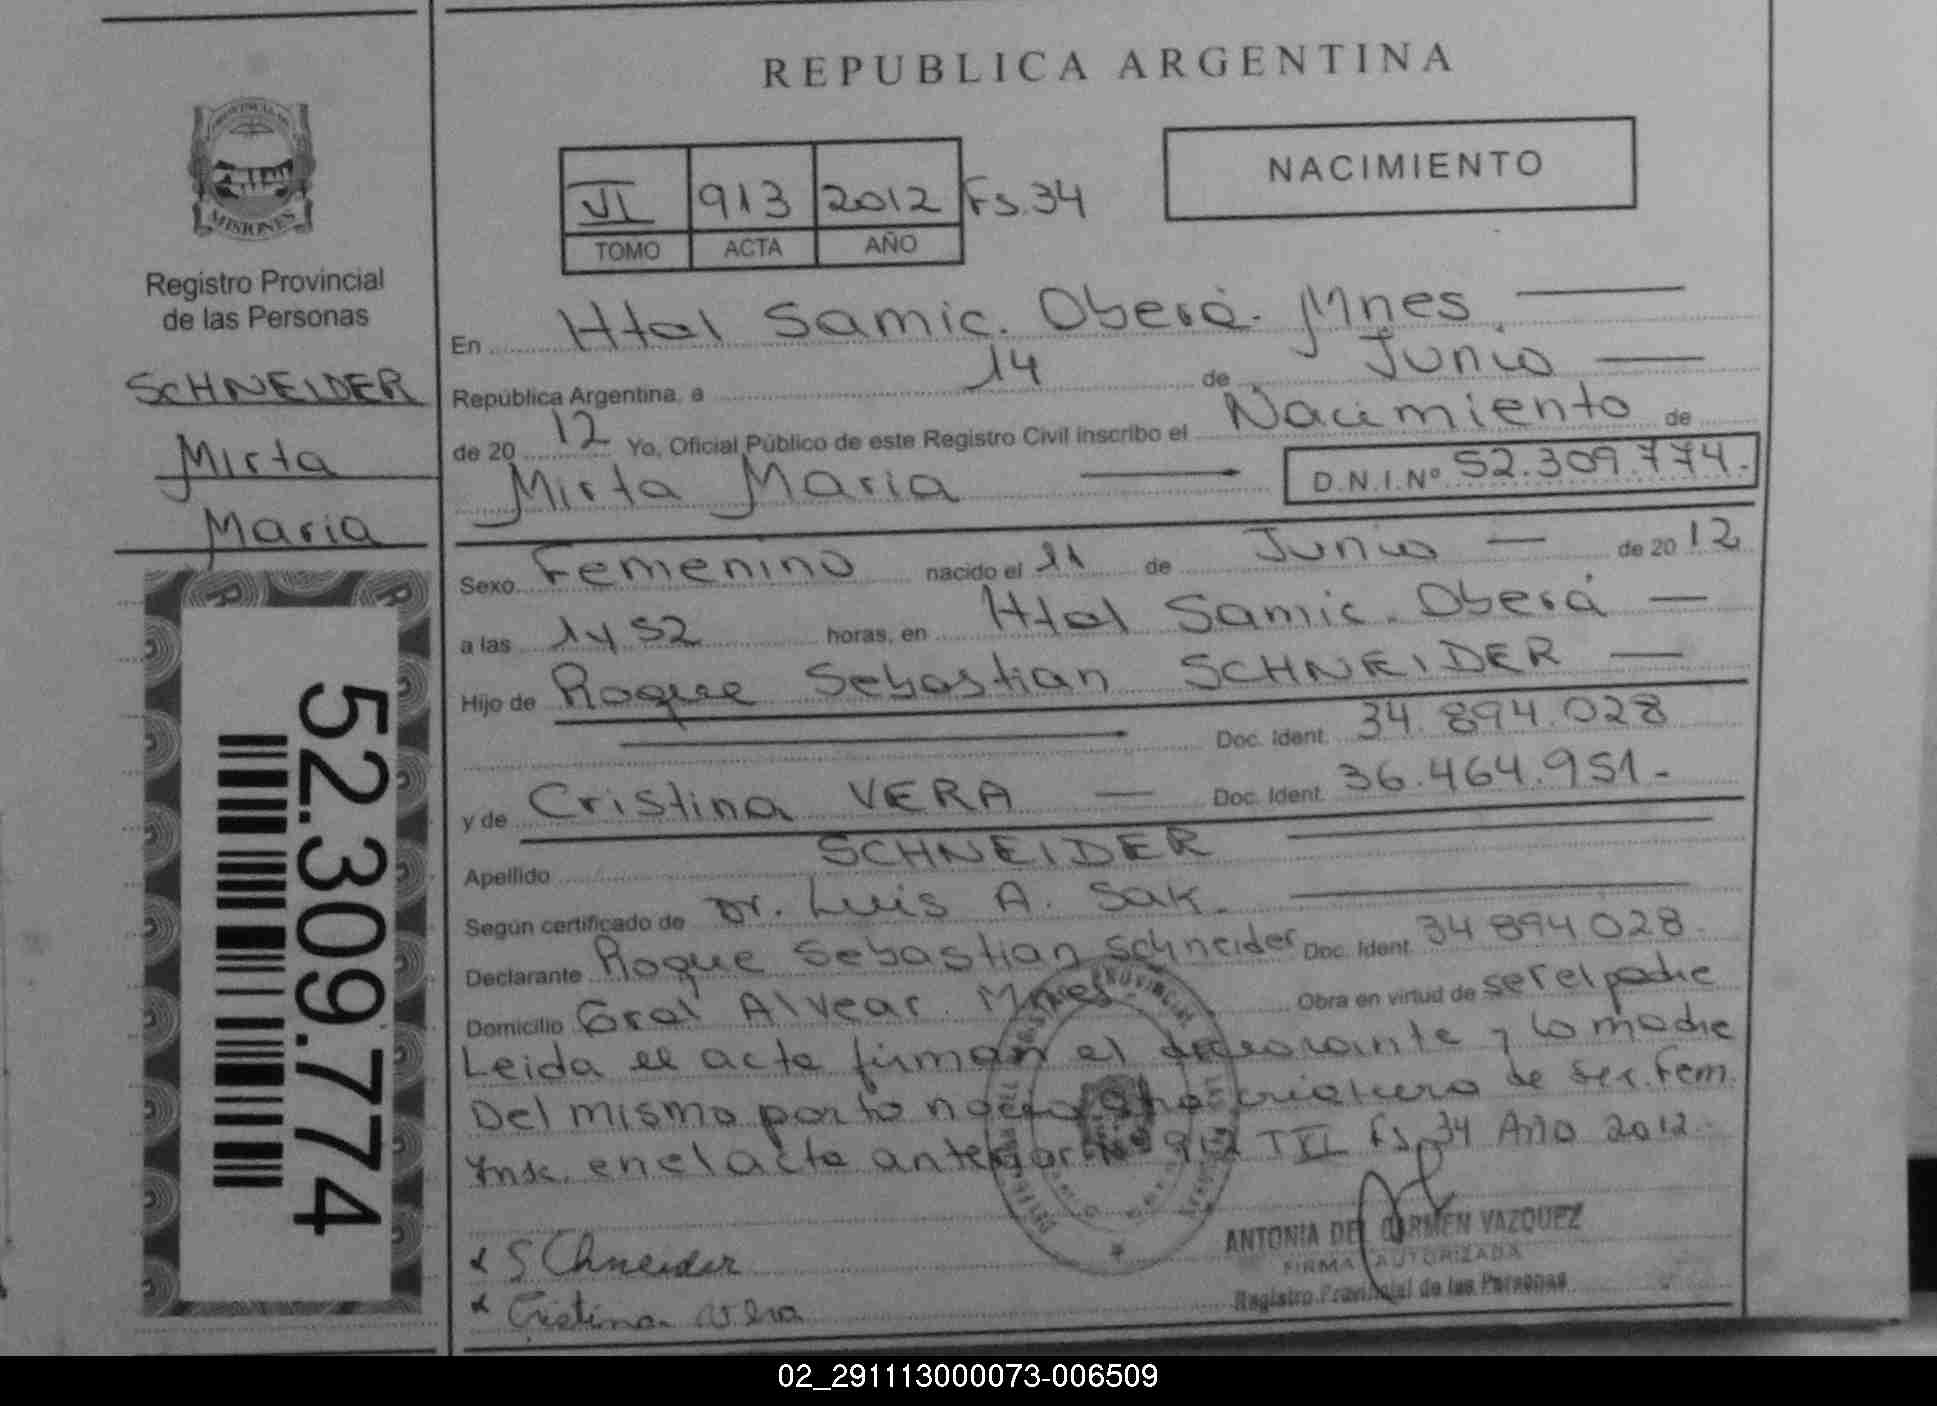 REPUBLICA ARGENTINA
NACIMIENTO
VI 913 2012 Fs. 34
TOMO ACTA AÑO
MISIONES
Registro Provincial
de las Personas
SCHNEIDER
Mirta
Maria
52.309.774
En Htal Samic. Oberá. Mnes.
República Argentina, a 14 de Junio
de 2012 Yo, Oficial Público de este Registro Civil inscribo el Nacimiento de
Mirta Maria D.N.I.Nº 52.309.774.
Sexo Femenino nacido el 11 de Junio de 2012
a las 14 52 horas, en Htal Samic. Oberá
Hijo de Roque Sebastian SCHNEIDER
Doc. Ident. 34.894.028
y de Cristina VERA Doc. Ident. 36.464.951.-
Apellido SCHNEIDER
Según certificado de Dr. Luis A. Sak.
Declarante Roque Sebastian Schneider Doc. Ident. 34 894 028.
Domicilio Gral Alvear. Mnes. Obra en virtud de ser el padre
Leida el acta firman el declarante y la madre
Del mismo parto nacio otra criatura de sex. Fem.
Insc. en el acta anterior Nº 912 T VI Fs. 34 Año 2012.
x SChneider
x Cristina Vera
ANTONIA DEL CARMEN VAZQUEZ
FIRMA AUTORIZADA
Registro Provincial de las Personas
02_291113000073-006509